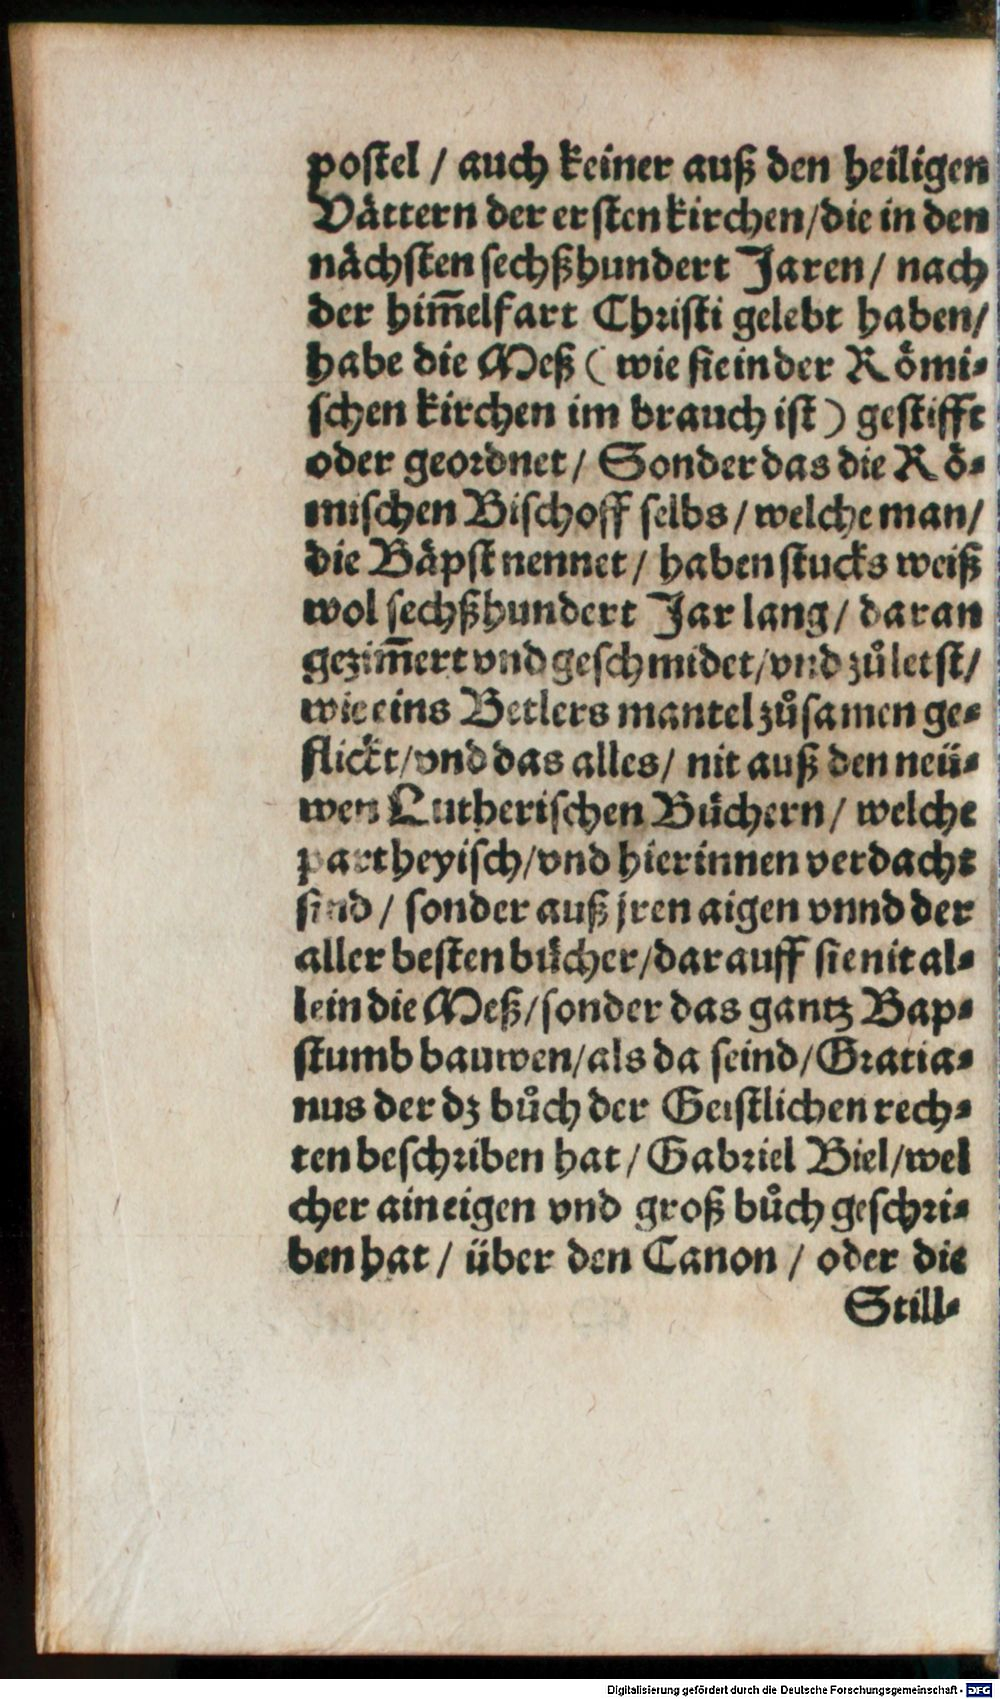 postel / auch keiner auß den heiligen
Vättern der ersten kirchen/die in den
nächsten sechßhundert Jaren / nach
der him̃elfart Christi gelebt haben/
habe die Meß ( wie sie in der Römi-
schen kirchen im brauch ist ) gestifft
oder geordnet / Sonder das die Rö-
mischen Bischoff selbs / welche man/
die Bäpst nennet / haben stucks weiß
wol sechßhundert Jar lang / daran
gezim̃ert vnd geschmidet/vnd zůletst/
wie eins Betlers mantel zůsamen ge-
flickt/vnd das alles/ nit auß den neü-
wen Lutherischen Büchern / welche
partheyisch/vnd hierinnen verdacht
sind / sonder auß jren aigen vnnd der
aller besten bücher/darauff sie nit al-
lein die Meß/sonder das gantz Bap-
stumb bauwen/als da seind/Gratia-
nus der dz bůch der Geistlichen rech-
ten beschriben hat / Gabriel Biel/wel
cher ain eigen vnd groß bůch geschri-
ben hat / über den Canon / oder die
Still-
Digitalisierung gefördert durch die Deutsche Forschungsgemeinschaft - DFG